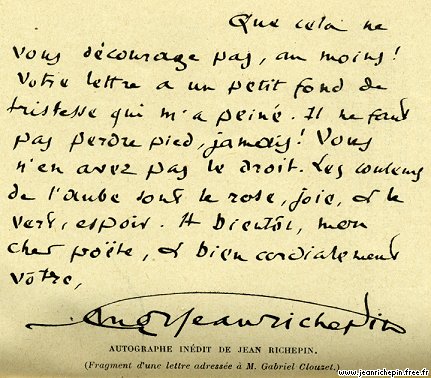 Que cela ne
vous décourage pas, au moins!
Votre lettre a un petit fond de
tristesse qui m'a peiné. Il ne faut
pas perdre pied, jamais! Vous
n'en avez pas le droit. Les couleurs
de l'aube sont le rose, joie, & le
vert, espoir. A bientôt, mon
cher poëte, & bien cordialement
vôtre,
Jean Richepin
AUTOGRAPHE INÉDIT DE JEAN RICHEPIN.
(Fragment d'une lettre adressée à M. Gabriel Clouzet.)
www.jeanrichepin.free.fr